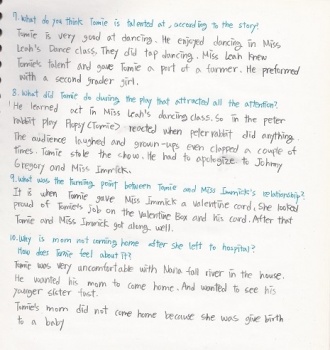 7. What do you think Tomie is talented at, according to the story?
Tomie is very good at dancing. He enjoyed dancing in Miss
Leah's Dance class. They did tap dancing. Miss Leah knew
Tomie's talent and gave Tomie a part of a farmer. He preformed
with a second grader girl.
8. What did Tomie do during the play that attracted all the attention?
He learned act in Miss Leah's dancing class. So in the peter
rabbit play Flopsy(Tomie) reacted when peter rabbit did anything.
The audience laughed and grown-ups even clapped a couple of
times. Tomie stole the show. He had to apologize to Johnny
Gregory and Miss Immick.
9. What was the turning point between Tomie and Miss Immick's relationship?
It is when Tomie gave Miss Immick a Valentine card. She looked
proud of Tomie's job on the Valentine Box and his card. After that
Tomie and Miss Immick got along well.
10. Why is mom not coming home after she left to hospital?
How does Tomie feel about it?
Tomie was very uncomfortable with Nana fall river in the house.
He wanted his mom to come home. And wanted to see his
younger sister fast.
Tomie's mom did not come home because she was give birth
to a baby